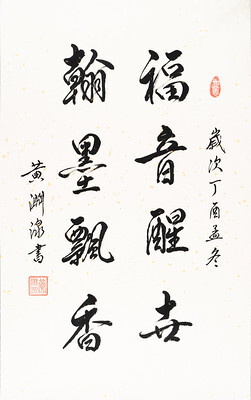 歲次丁酉孟冬
福音醒世
翰墨飄香
黃渊書